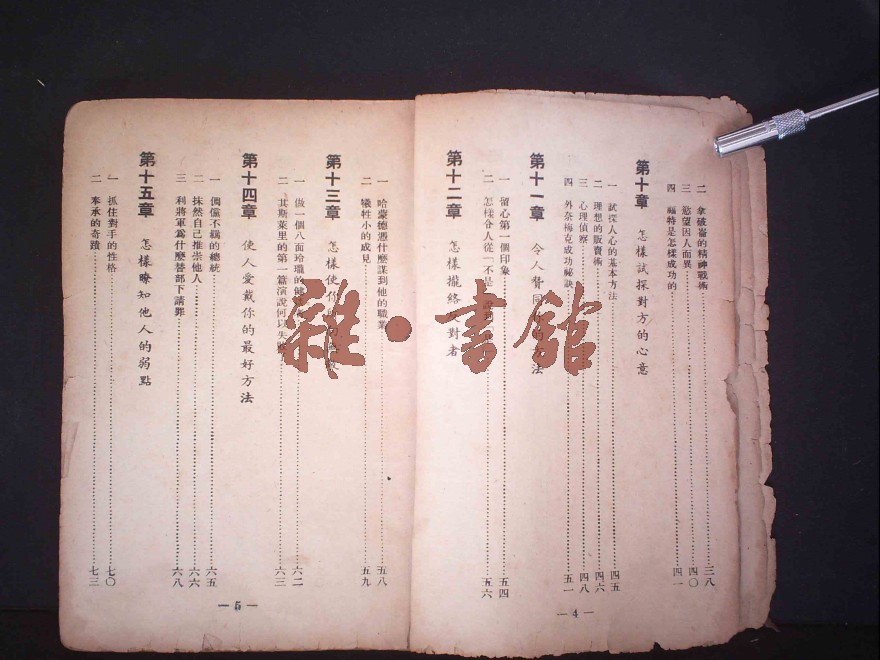 二 拿破崙的精神戰術 三八
三 慾望因人而異 四〇
四 福特是怎樣成功的 四一
第十章 怎樣試探對方的心意
一 試探人心的基本方法 四五
二 理想的販賣術 四六
三 心理偵察 四八
四 外奈梅克成功祕訣 五一
第十一章 令人贊同 法
一 留心第一個印象 五四
二 怎樣令人從「不是」 五六
第十二章 怎樣攏絡 對者
— 4 —
一 哈蒙德憑什麼謀到他的職業 五八
二 犧牲小的成見 五九
第十三章 怎樣使你
一 做一個八面玲瓏的 六二
二 其斯萊里的第一篇演說何以失 六三
第十四章 使人愛戴你的最好方法
一 倜儻不羈的總統 六五
二 抹然自己推崇他人 六六
三 利將軍爲什麼替部下請罪 六八
第十五章 怎樣瞭知他人的弱點
一 抓住對手的性格 七〇
二 奉承的奇蹟 七三
— 5 —
雜·書館